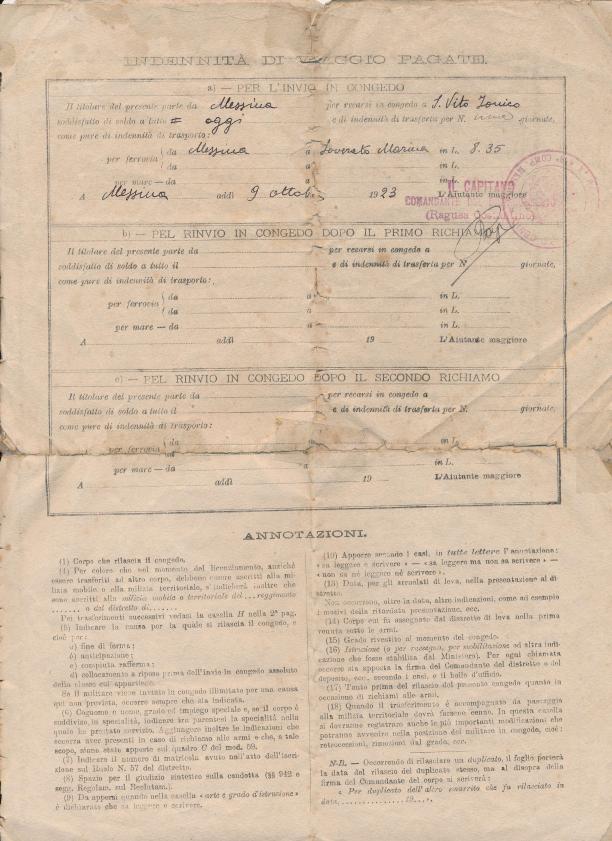 INDENNITÀ DI VIAGGIO PAGATE.
a) — PER L'INVIO IN CONGEDO
Il titolare del presente parte da Messina per recarsi in congedo a S. Vito Jonico
soddisfatto di soldo a tutto = oggi e di indennità di trasferta per N. giornate,
come pure di indennità di trasporto:
per ferrovia { da Messina a Soverato Marina in L. 8.35
da a in L.
per mare — da a in L.
A Messina addì 9 ottob. 1923 L'Aiutante maggiore
IL CAPITANO
COMANDANTE
(Ragusa
b) — PEL RINVIO IN CONGEDO DOPO IL PRIMO RICHIAMO
Il titolare del presente parte da per recarsi in congedo a
soddisfatto di soldo a tutto il e di indennità di trasferta per N. giornate,
come pure di indennità di trasporto:
per ferrovia { da a in L.
da a in L.
per mare — da a in L.
A addì 19 L'Aiutante maggiore
c) — PEL RINVIO IN CONGEDO DOPO IL SECONDO RICHIAMO
Il titolare del presente parte da per recarsi in congedo a
soddisfatto di soldo a tutto il e di indennità di trasferta per N. giornate,
come pure di indennità di trasporto:
per ferrovia { da a in L.
da
per mare — da a in L.
A addì 19 L'Aiutante maggiore
ANNOTAZIONI.
(1) Corpo che rilascia il congedo.
(4) Per coloro che sul momento del licenziamento, anzichè
essere trasferiti ad altro corpo, debbono essere ascritti alla mi-
lizia mobile o alla milizia territoriale, s'indicherà inoltre che
sono ascritti alla milizia mobile o territoriale del ... reggimento
....... o del distretto di.......
Pei trasferimenti successivi vedasi la casella H nella 2ª pag.
(5) Indicare la causa per la quale si rilascia il congedo, e
cioè per:
a) fine di ferma;
b) anticipazione;
c) compiuta rafferma;
d) collocamento a riposo prima dell'invio in congedo assoluto
della classe cui appartiene.
Se il militare viene inviato in congedo illimitato per una causa
qui non prevista, occorre sempre che sia indicata.
(6) Cognome e nome, grado ed impiego speciale e, se il corpo è
suddiviso in specialità, indicare tra parentesi la specialità nella
quale ha prestato servizio. Aggiungere inoltre le indicazioni che
occorra aver presenti in caso di richiamo alle armi e che, a tale
scopo, siano state apposte sul quadro C del mod. 59.
(7) Indicare il numero di matricola avuto nell'atto dell'iscri-
zione sul Ruolo N. 57 del distretto.
(8) Spazio per il giudizio sintetico sulla condotta (§§ 942 e
segg. Regolam. sul Reclutam.).
(9) Da apporsi quando nella casella « arte e grado d'istruzione »
è dichiarato che sa leggere e scrivere.
(10) Apporre secondo i casi, in tutte lettere l'annotazione:
« sa leggere e scrivere » — « sa leggere ma non sa scrivere » —
« non sa nè leggere nè scrivere ».
(13) Data, per gli arruolati di leva, nella presentazione al di-
stretto.
Non occorrono, oltre la data, altre indicazioni, come ad esempio
i motivi della ritardata presentazione, ecc.
(14) Corpo cui fu assegnato dal distretto di leva nella prima
venuta sotto le armi.
(15) Grado rivestito al momento del congedo.
(16) Istruzione (o per rassegna, per mobilitazione od altra indi-
cazione che fosse stabilita dal Ministero). Per ogni chiamata
occorre sia apposta la firma del Comandante del distretto o del
deposito, ecc., secondo i casi, e il bollo d'ufficio.
(17) Tanto prima del rilascio del presente congedo quanto in
occasione di richiami alle armi.
(18) Quando il trasferimento è accompagnato da passaggio
alla milizia territoriale dovrà farsene cenno. In questa casella
si dovranno registrare anche le più importanti modificazioni che
potranno avvenire nella posizione del militare in congedo, cioè:
retrocessioni, rimozioni dal grado, ecc.
N.B. — Occorrendo di rilasciare un duplicato, il foglio porterà
la data del rilascio del duplicato stesso, ma al disopra della
firma del Comandante del corpo si scriverà:
« Per duplicato dell'altro smarrito che fu rilasciato in
data.................19....».